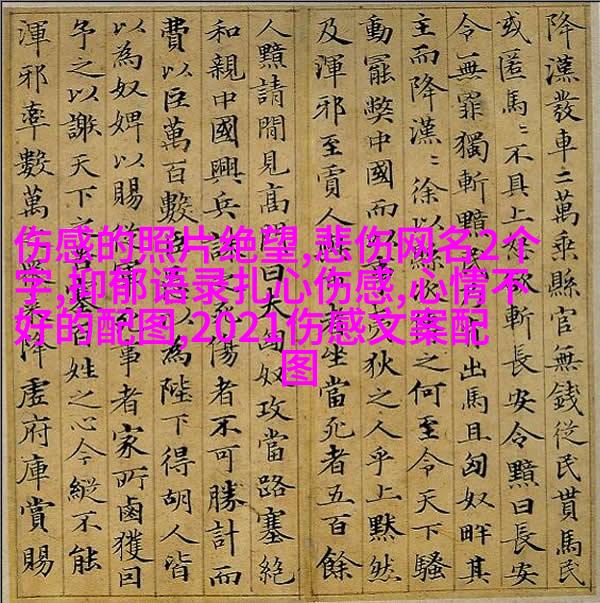 降漢發車二萬乘縣官無錢從民貰馬民
或匿馬〻不具上怒欲斬長安令黯曰長安
令無罪獨斬黯出馬且匈奴畔其
主而降漢〻徐以縣之何至令天下騷
動罷獘中國而以事狄之人乎上默然
及渾邪至賈人坐當死者五百餘
人黯請間見高門曰夫匈奴攻當路塞絕
和親中國興兵傷者不可勝計而
費以巨萬百數以為陛下得胡人皆
以為奴婢以賜從軍事者家所鹵獲因
予之以謝天下之苦百姓之心今縱不能
渾邪率數萬來降虛府庫賞賜
伤感的照片绝望,悲伤网名2个
字,抑郁语录扎心伤感,心情不
好的配图,2021伤感文案配
图